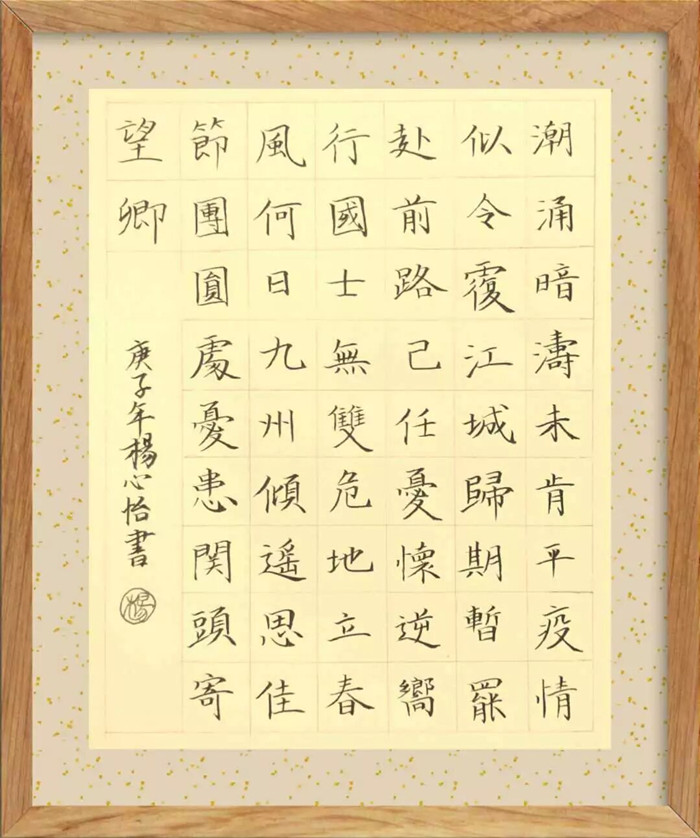 潮涌暗濤未肯平疫情
似令覆江城歸期暫罷
赴前路己任憂懷逆嚮
行國士無雙危地立春
風何日九州傾遥思佳
節團圓處憂患関頭寄
望卿
庚子年楊心怡書
楊